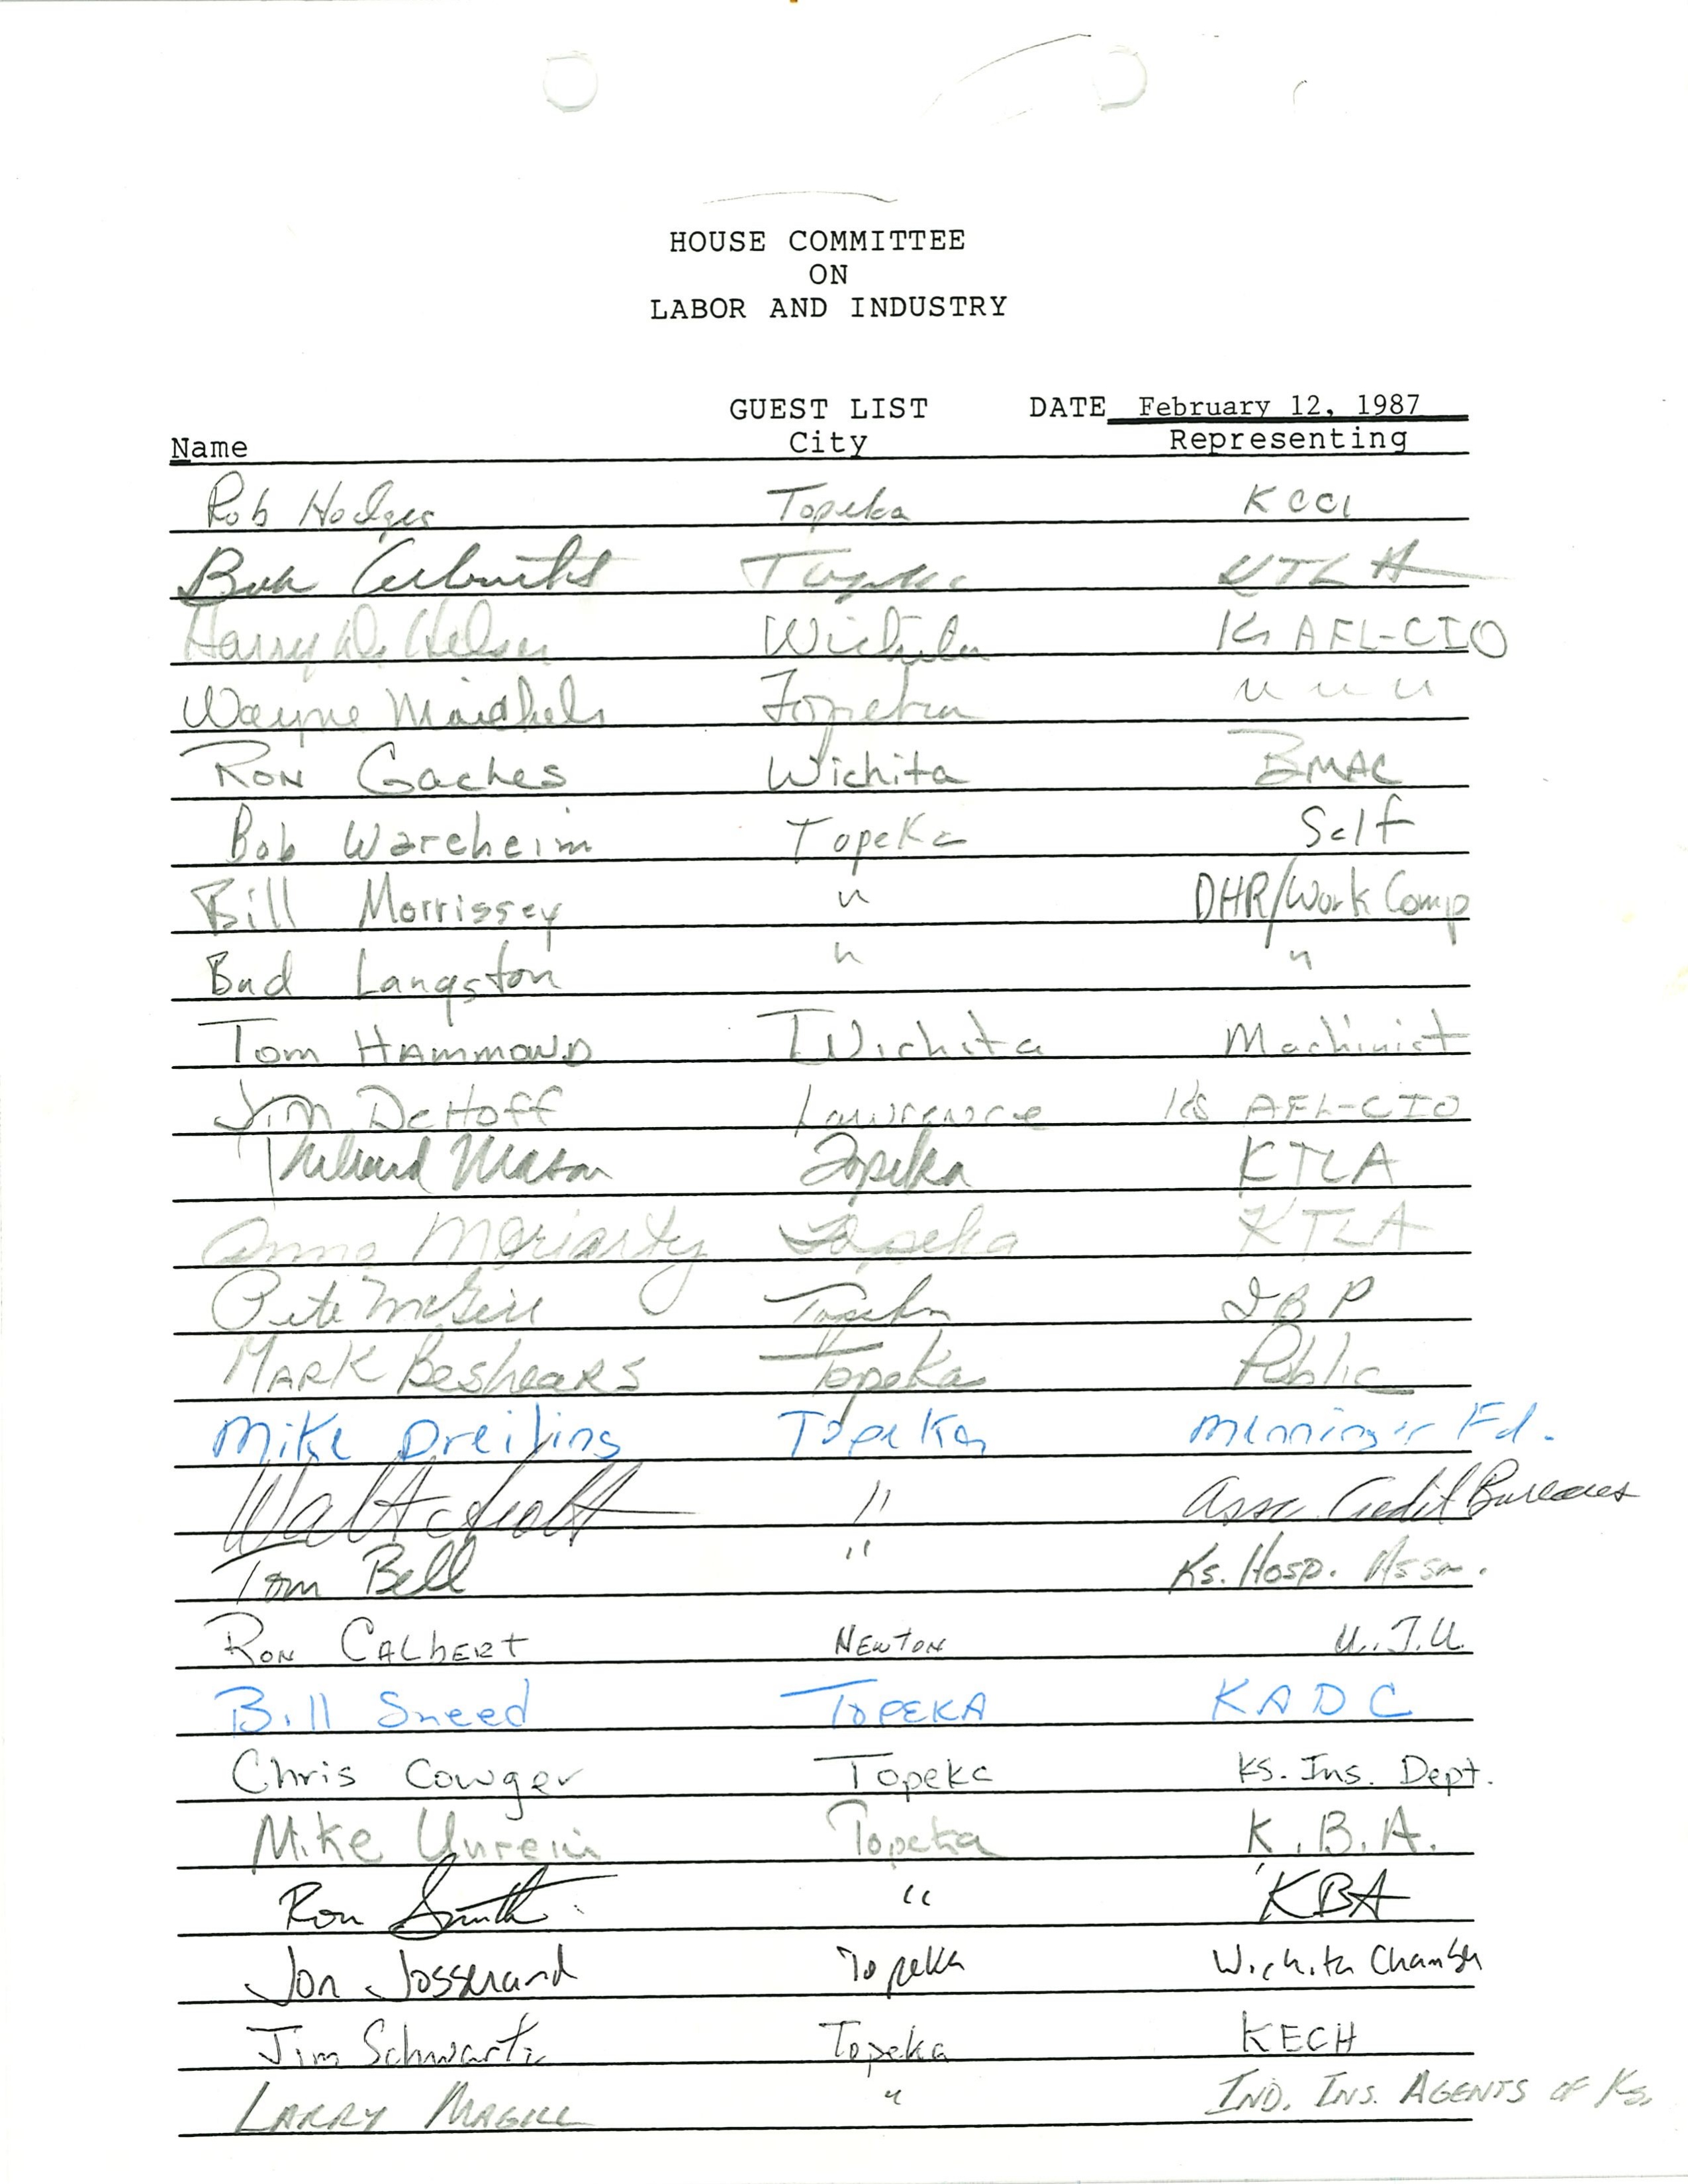 HOUSE COMMITTEE
ON
LABOR AND INDUSTRY
GUEST LIST DATE February 12, 1987
Name City Representing
Rob Hodges Topeka KCCI
Topeka KTLA
Harry D. Helser Wichita Ks AFL-CIO
Wayne Topeka " " "
Ron Gaches Wichita BMAC
Bob Wareheim Topeka Self
Bill Morrissey " DHR/Work Comp
Bud Langston " "
Tom Hammond Wichita Machinist
Jim DeHoff Lawrence Ks AFL-CIO
Richard Mason Topeka KTLA
Anne Moriarty Topeka KTLA
Pete McGill Topeka IBP
Mark Beshears Topeka Public
Mike Dreiling Topeka Menninger Fd.
Walt Scott " Assc. Credit Bureaus
Tom Bell " Ks. Hosp. Assn.
Ron Calbert Newton U.T.U.
Bill Sneed Topeka KADC
Chris Cowger Topeka Ks. Ins. Dept.
Mike Unrein Topeka K.B.A.
Ron Smith " KBA
Jon Josserand Topeka Wichita Chamber
Jim Schwartz Topeka KECH
Larry Magill " Ind. Ins. Agents of Ks.